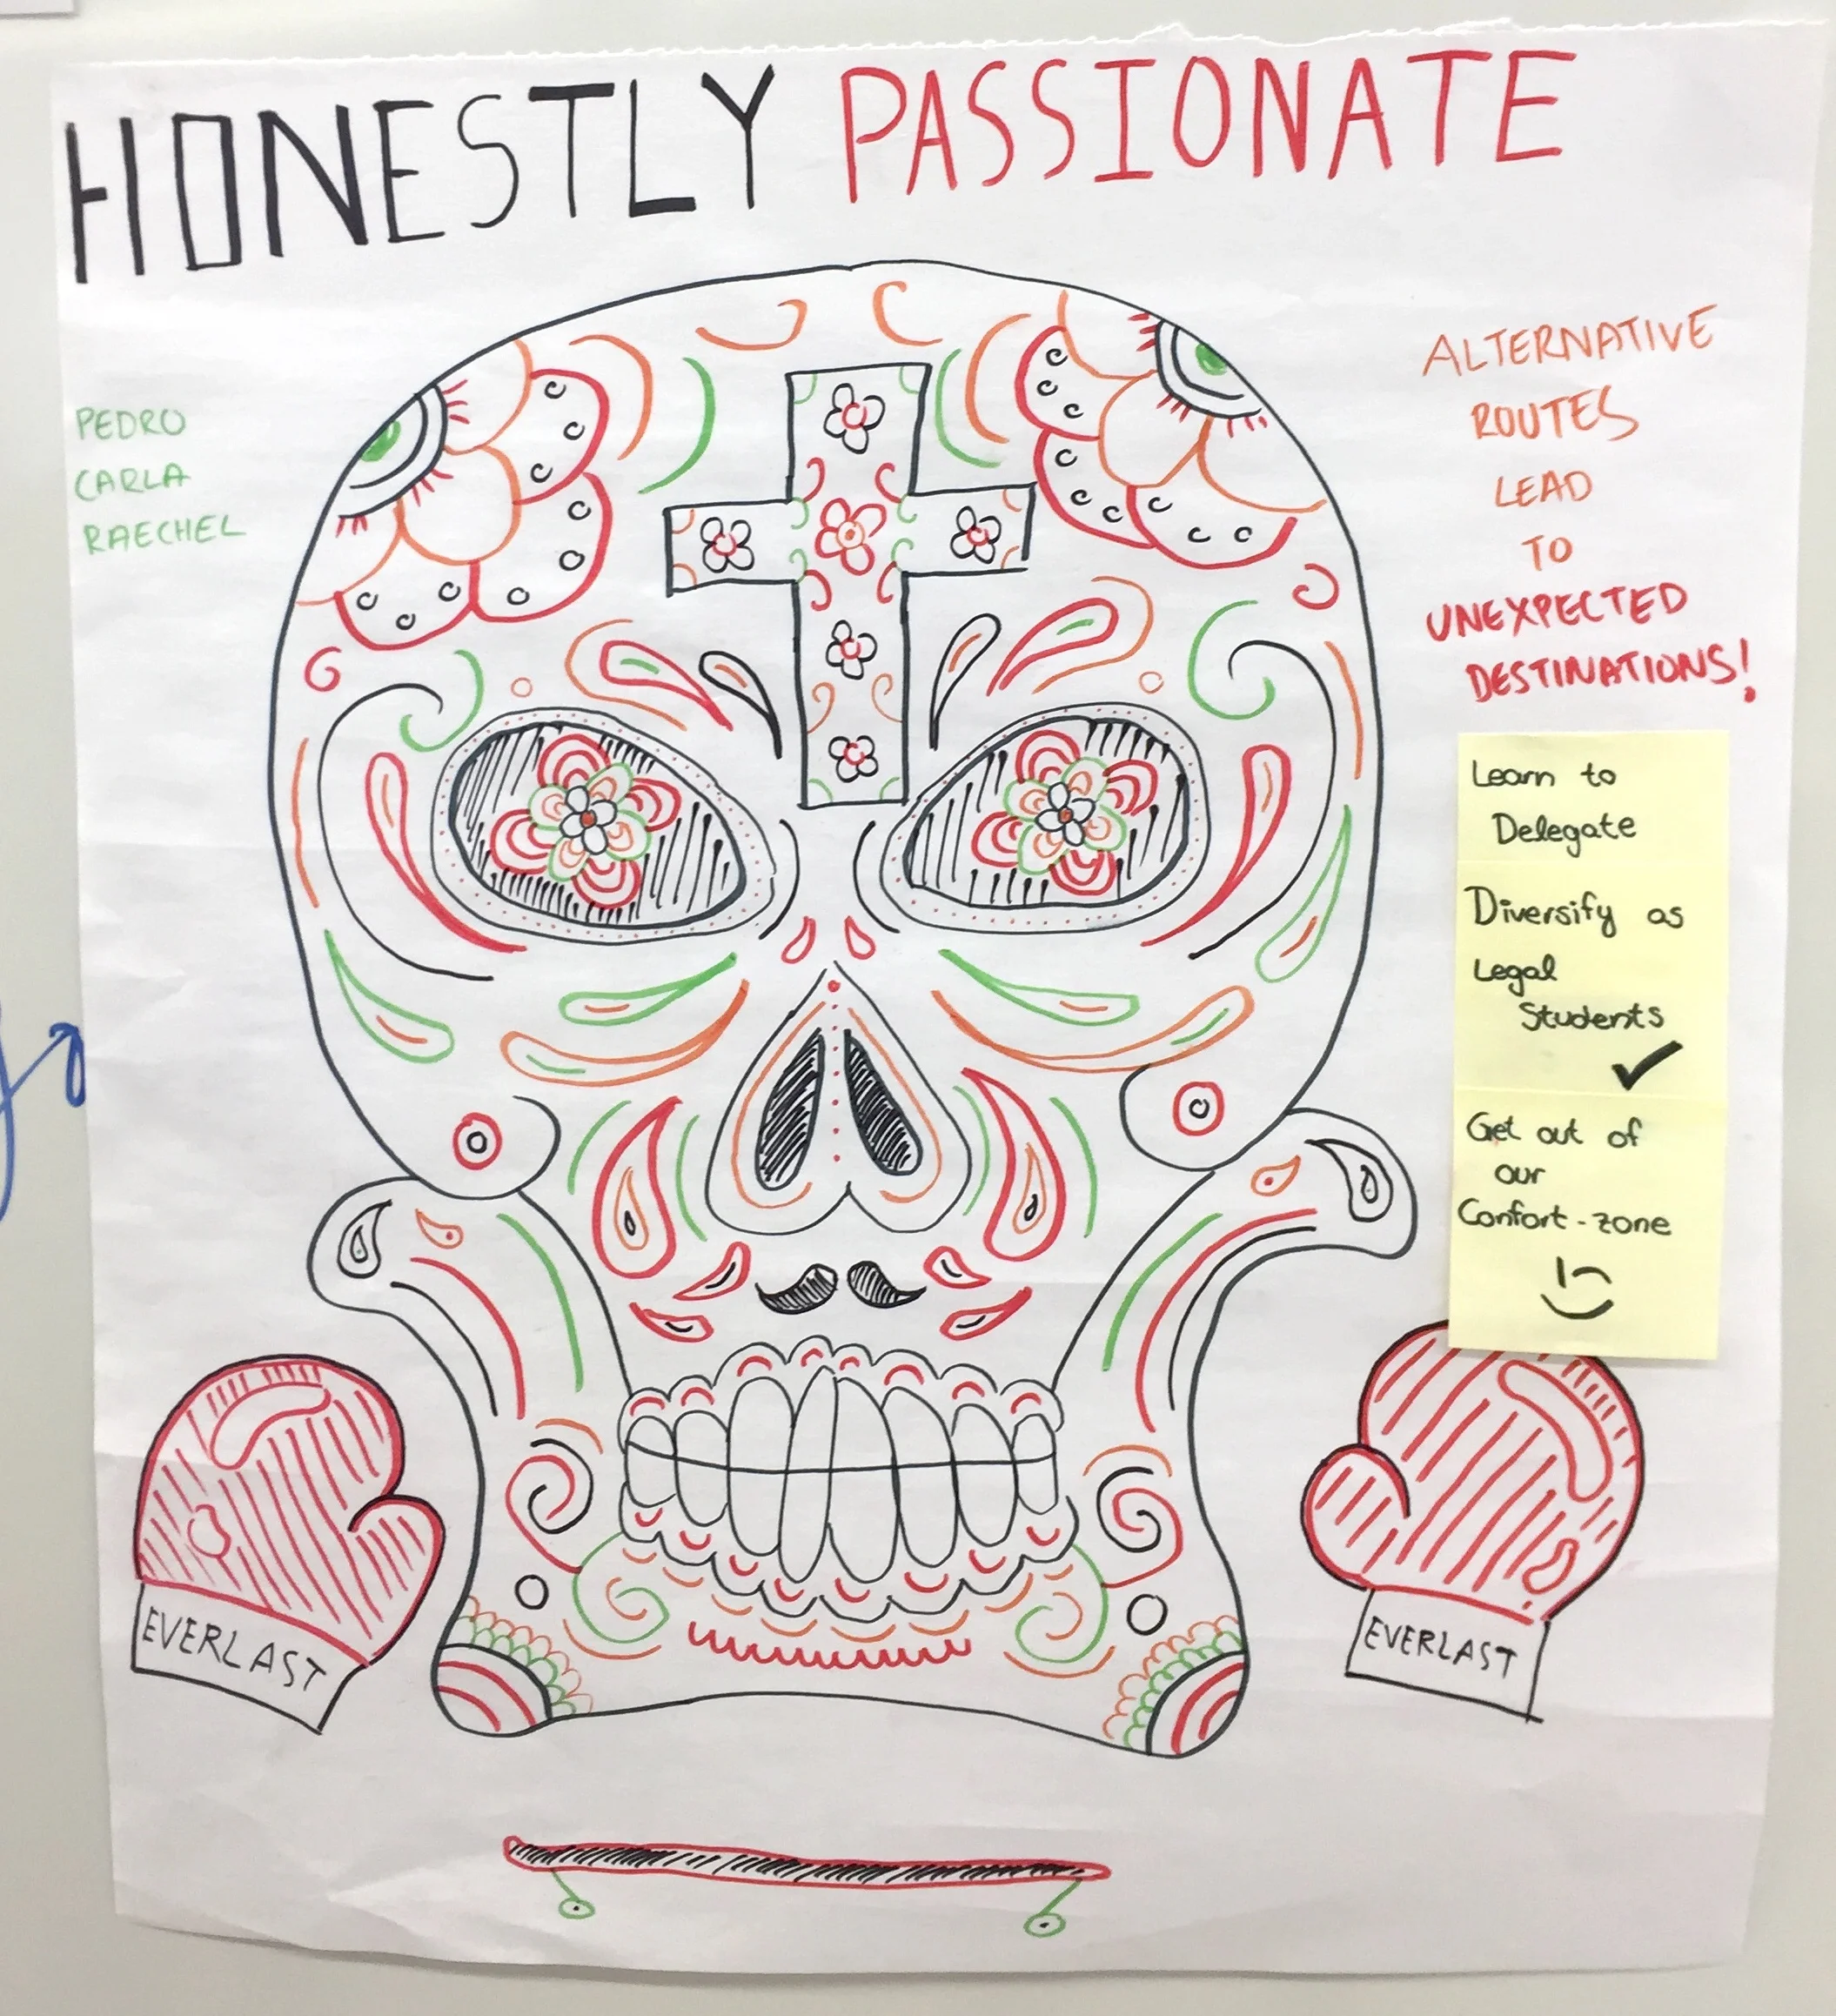 HONESTLY PASSIONATE
PEDRO
CARLA
RAECHEL
ALTERNATIVE
ROUTES
LEAD
TO
UNEXPECTED
DESTINATIONS!
Learn to
Delegate
Diversify as
Legal
Students
Get out of
our
Confort-zone
EVERLAST
EVERLAST